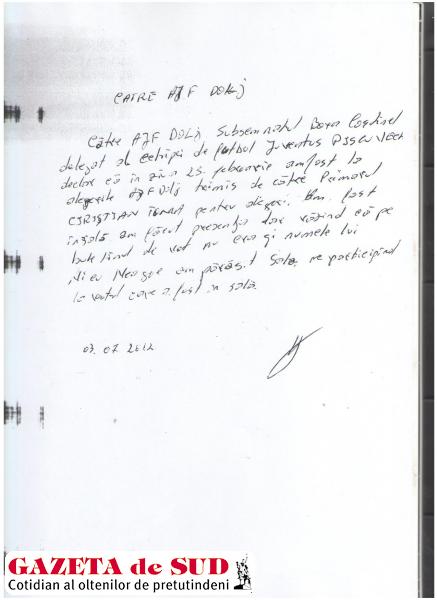 CATRE AJF DOLJ
Către AJF DOLJ, Subsemnatul Costinel
delegat al echipei de fotbal Juventus
declar că în ziua 25 februarie am fost la
alegerile AJF Dolj trimis de către Primarul
CIRISTIAN pentru alegeri. Am fost
în sală am făcut prezența dar văzînd că pe
buletinul de vot nu era și numele lui
Nicu Neagoe am părăsit sala, ne participînd
la votul care a fost în sală.
03.07.2012
GAZETA de SUD
Cotidian al oltenilor de pretutindeni